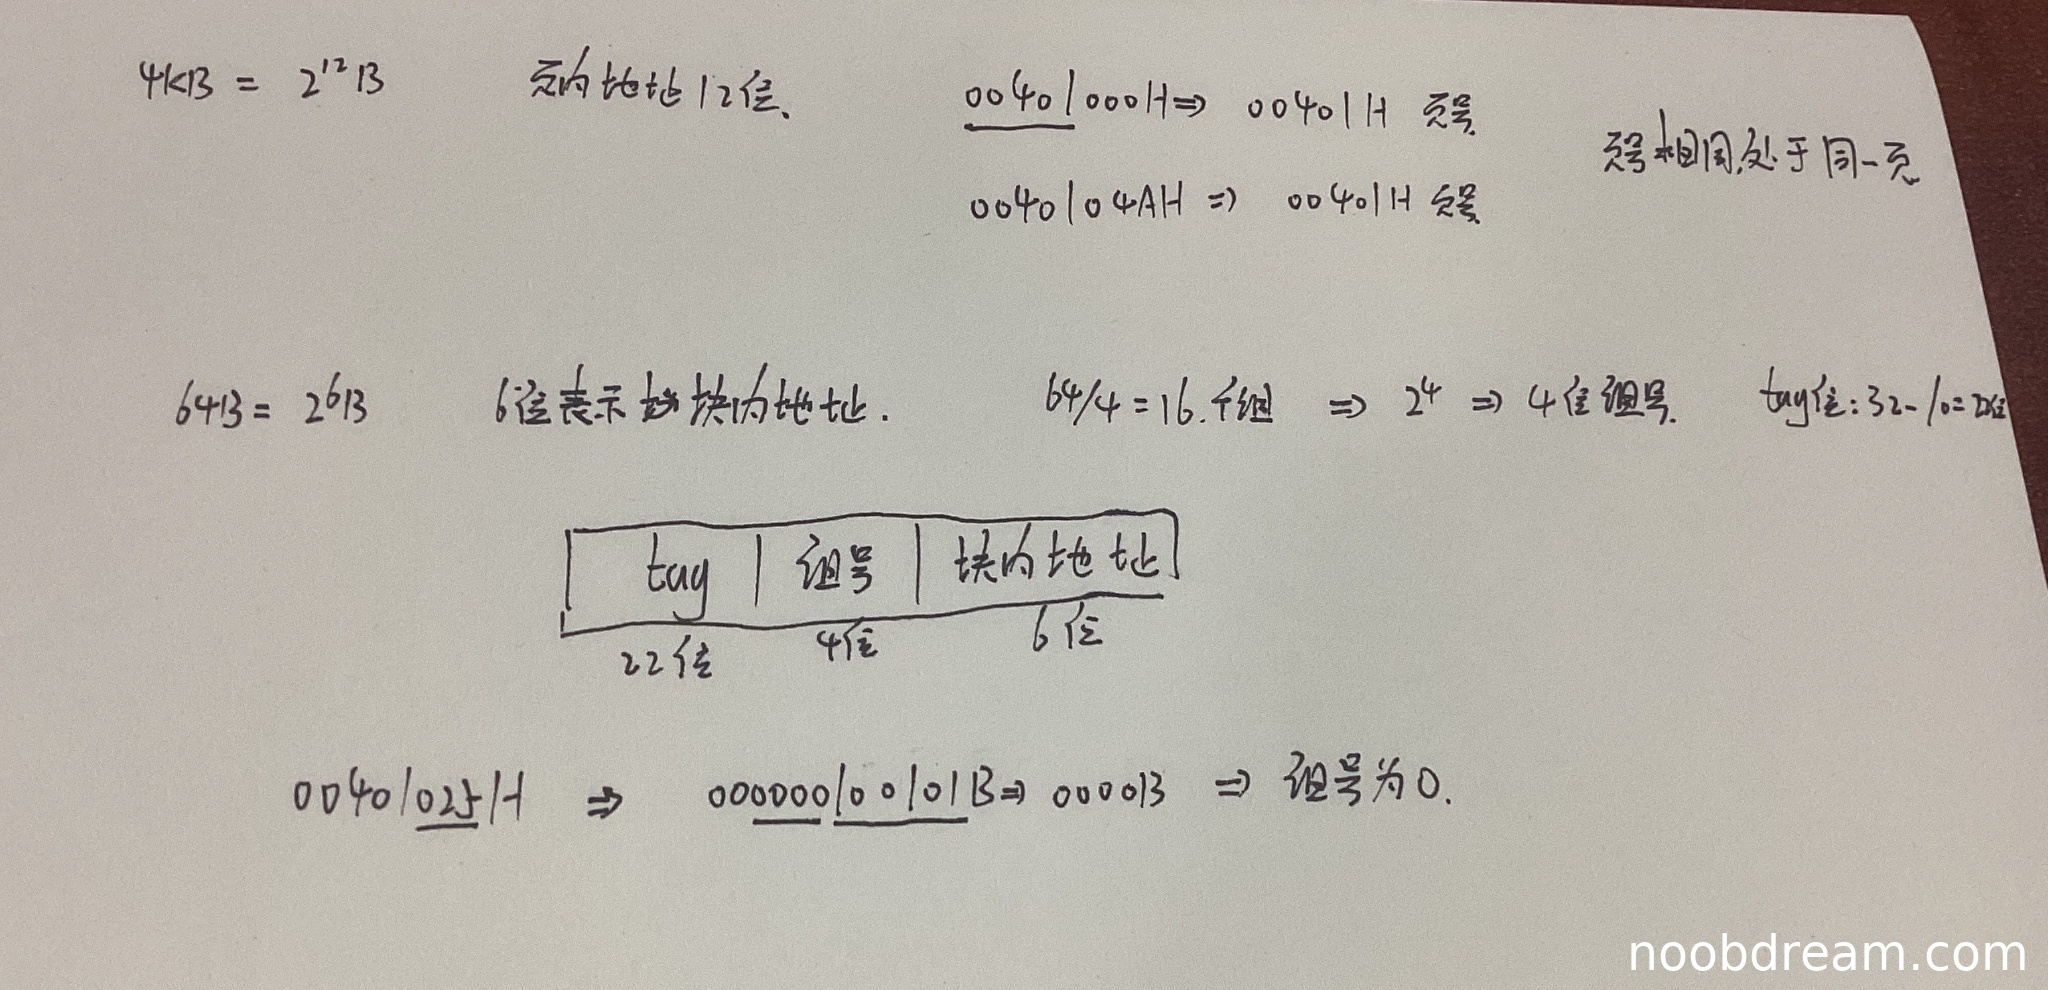 4KB = 2¹²B 页内地址12位、 00401000H⇒ 00401H 页号
0040104AH ⇒ 00401H 页号
页号相同,处于同一页
64B = 2⁶B 6位表示块内地址. 64/4=16.个组 ⇒ 2⁴ ⇒ 4位组号. tag位:32-10=22位
tag 组号 块内地址
22位 4位 6位
00401025H ⇒ 000000100101B⇒ 0000B ⇒ 组号为0.
noobdream.com